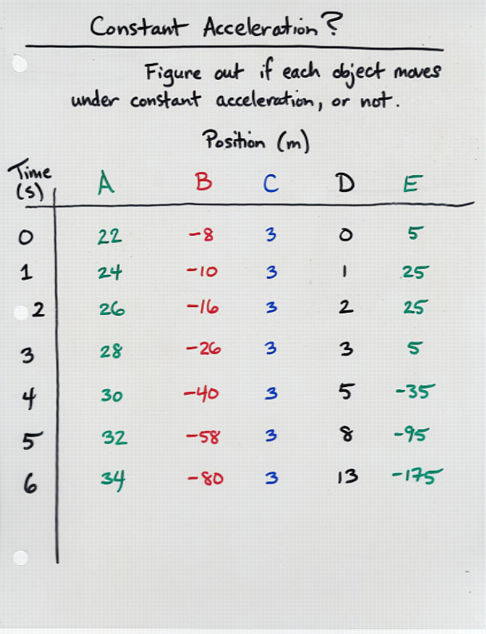 Constant Acceleration?
Figure out if each object moves
under constant acceleration, or not.
Position (m)
Time (s) A B C D E
0 22 -8 3 0 5
1 24 -10 3 1 25
2 26 -16 3 2 25
3 28 -26 3 3 5
4 30 -40 3 5 -35
5 32 -58 3 8 -95
6 34 -80 3 13 -175